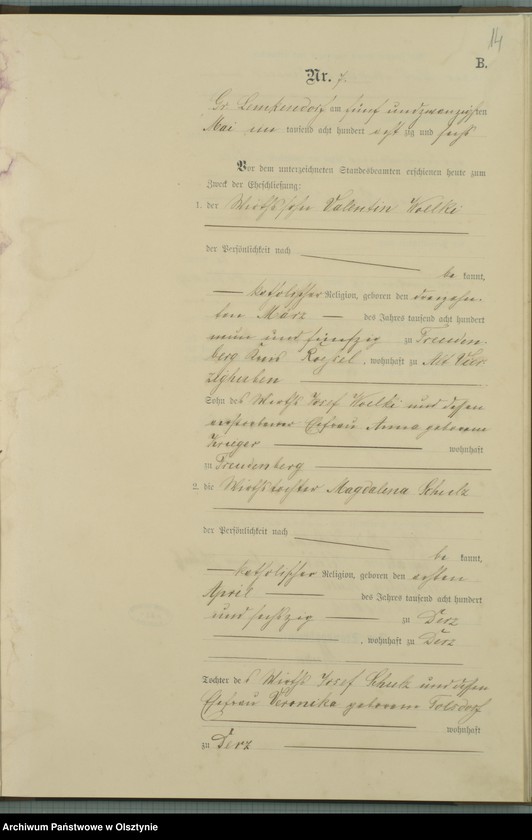 14
B.
Nr. 7.
Gr. Lemkendorf am fünf und zwanzigsten
Mai ein tausend acht hundert achtzig und sechs
Vor dem unterzeichneten Standesbeamten erschienen heute zum
Zweck der Eheschließung:
1. der Wirthssohn Valentin Woelki
der Persönlichkeit nach
be kannt,
katholischer Religion, geboren den dreizehn-
ten März des Jahres tausend acht hundert
neun und fünfzig zu Freuden-
berg Kreis Roessel, wohnhaft zu Alt Vier-
zighuben
Sohn des Wirths Josef Woelki und dessen
verstorbener Ehefrau Anna geborene
Krueger wohnhaft
zu Freudenberg
2. die Wirthstochter Magdalena Schulz
der Persönlichkeit nach
be kannt,
katholischer Religion, geboren den ersten
April des Jahres tausend acht hundert
und sechszig zu Derz
, wohnhaft zu Derz
Tochter des Wirths Josef Schulz und dessen
Ehefrau Veronika geborene Tolsdorf
wohnhaft
zu Derz
Archiwum Państwowe w Olsztynie